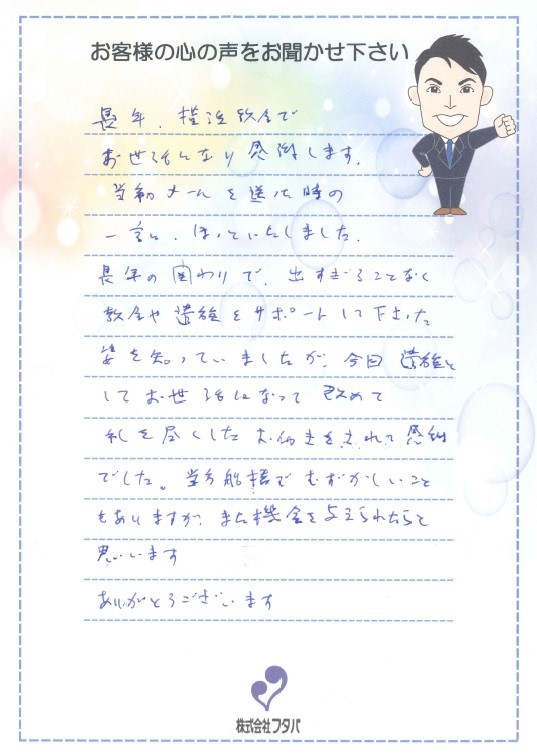 お客様の心の声をお聞かせ下さい
長年、横浜教会で
お世話になり感謝します。
当初メールを送った時の
一言に、ほっといたしました。
長年の関わりで、出すぎることなく
教会や遺族をサポートして下さった
姿を知っていましたが、今回遺族と
してお世話になって改めて
礼を尽くしたお働きをされて感謝
でした。当方船橋でむずかしいこと
もありますが、また機会を与えられたらと
思います
ありがとうございます
株式会社フタバ